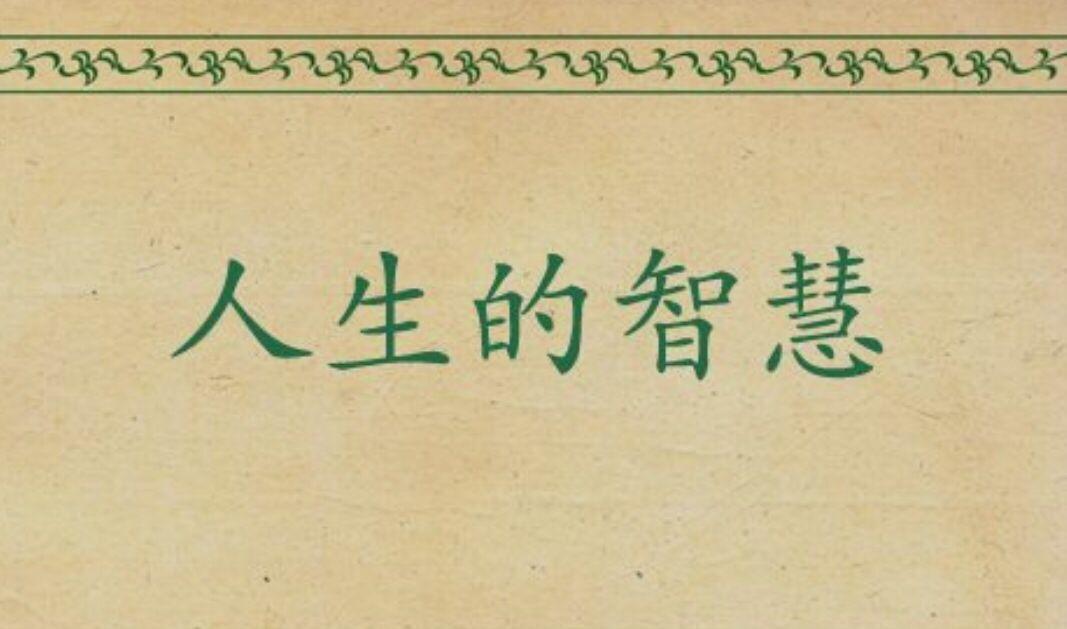 人生的智慧